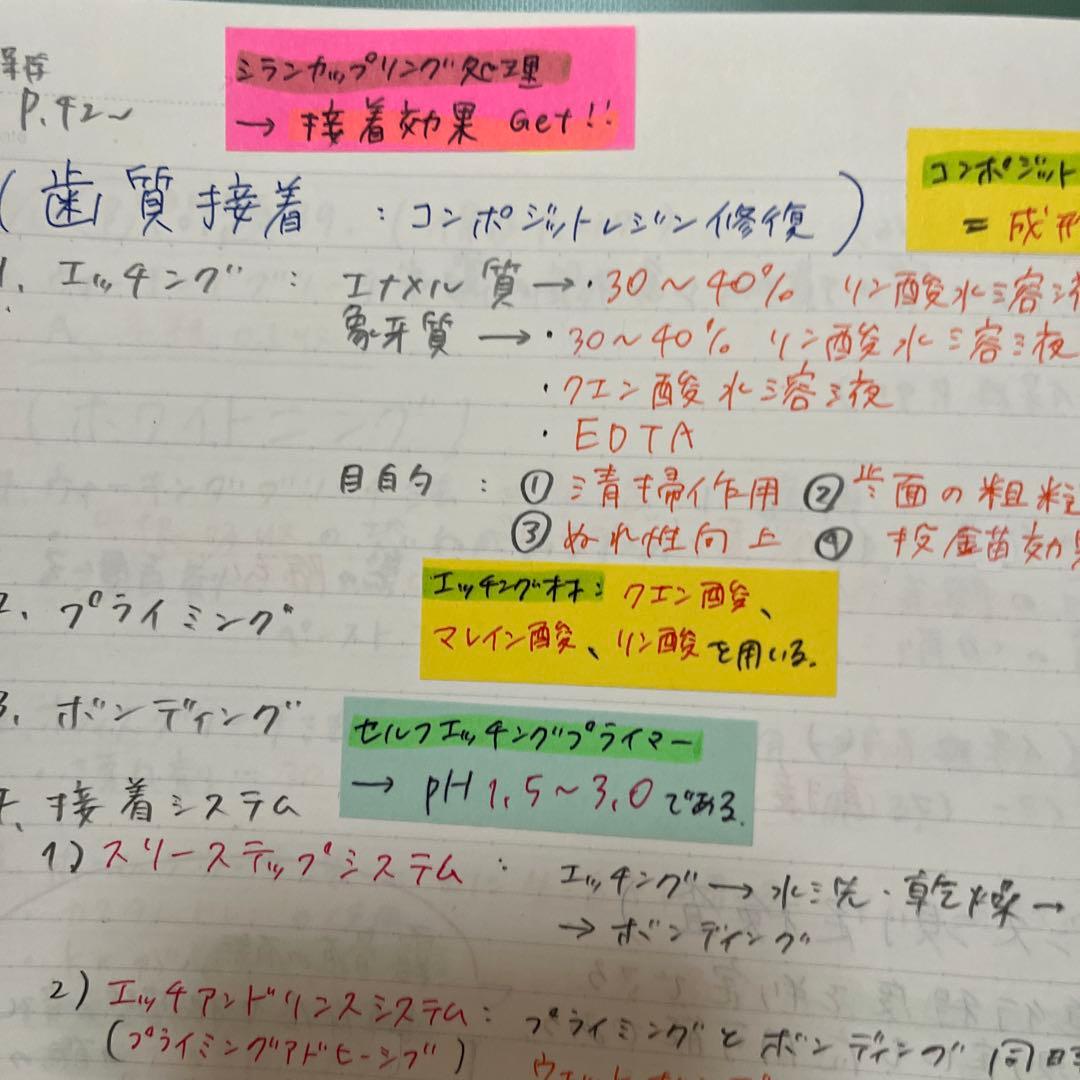 P.42~
シランカップリング処理
→ 接着効果 Get!!
(歯質接着 : コンポジットレジン修復)
コンポジット
= 成形
1. エッチング : エナメル質 → ・30〜40% リン酸水溶液
象牙質 → ・30〜40% リン酸水溶液
・クエン酸水溶液
・EDTA
目的 : ① 清掃作用 ② 歯面の粗糙
③ ぬれ性向上 ④ 抗菌効果
2. プライミング
エッチング材: クエン酸、
マレイン酸、リン酸を用いる。
3. ボンディング
セルフエッチングプライマー
→ pH 1.5〜3.0である。
4. 接着システム
1) スリーステップシステム : エッチング → 水洗・乾燥 →
→ ボンディング
2) エッチアンドリンスシステム : プライミングとボンディング同時
(プライミングアドヒーシブ)